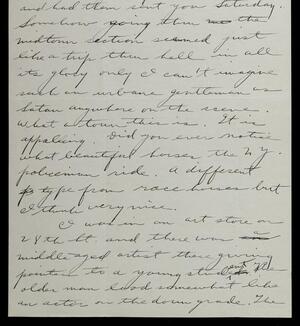 and had them sent you Saturday.
Somehow going thru the
midtown section seemed just
like a trip thru hell in all
its glory only I can't imagine
such an urbane gentleman as
Satan anywhere on the scene.
What a town this is. It is
appalling. Did you ever notice
what beautiful horses the N.Y.
policemen ride. A different
type from race horses but
I think very nice.
I was in an art store on
28th St. and there was a
middle aged artist there giving
pointers to a young student. The
older man lood somewhat like
an actor on the down grade. The